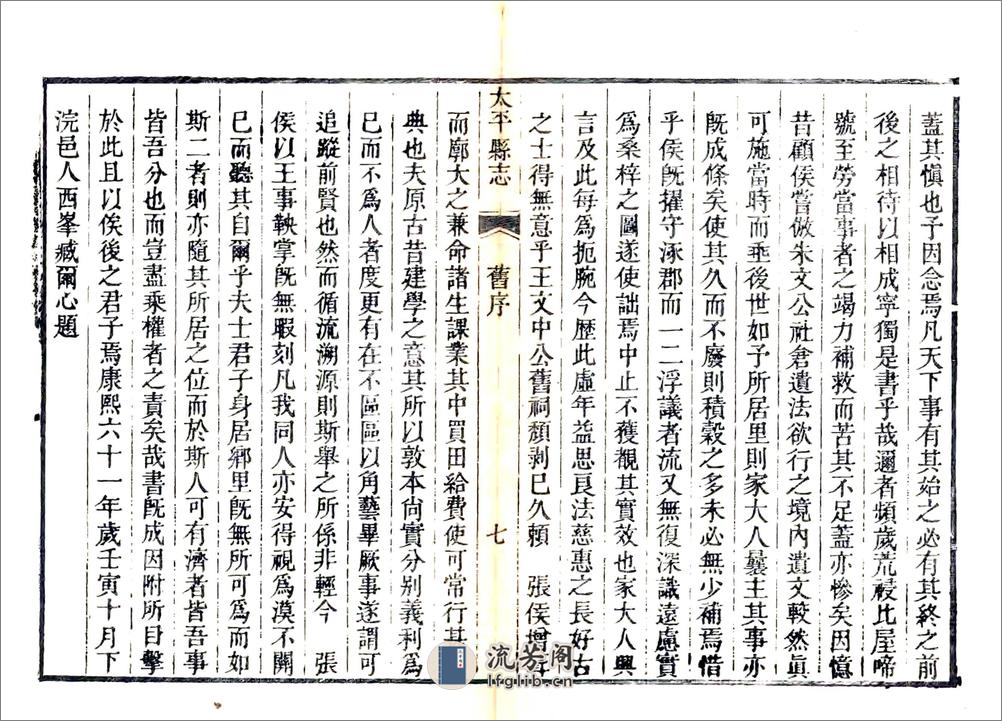 蓋其愼也予因念焉凡天下事有其始之必有其終之前
後之相待以相成寧獨是書乎哉邇者頻歲荒祲比屋啼
號至勞當事者之竭力補救而苦其不足蓋亦慘矣因憶
昔顧侯嘗倣朱文公社倉遺法欲行之境內遺文較然眞
可施當時而垂後世如予所居里則家大人曩主其事亦
旣成條矣使其久而不廢則積穀之多未必無少補焉惜
乎侯旣擢守涿郡而一二浮議者流又無復深識遠慮實
爲桑梓之圖遂使詘焉中止不獲覩其實效也家大人與
言及此每爲扼腕今歷此虛年益思良法慈惠之長好古
之士得無意乎王文中公舊祠頹剥已久賴 張侯增
太平縣志 舊序 七
而廓大之兼命諸生課業其中買田給費使可常行其
典也夫原古昔建學之意其所以敦本尙實分别義利爲
已而不爲人者度更有在不區區以角藝畢厥事遂謂可
追蹤前賢也然而循流溯源則斯舉之所係非輕今 張
侯以王事鞅掌旣無暇刻凡我同人亦安得視爲漠不關
已而聽其自爾乎夫士君子身居鄉里旣無所可爲而如
斯二者則亦隨其所居之位而於斯人可有濟者皆吾事
皆吾分也而豈盡乘權者之責矣哉書旣成因附所目擊
於此且以俟後之君子焉康熙六十一年歲壬寅十月下
浣邑人西峯臧爾心題
流芳阁
lfglib.cn